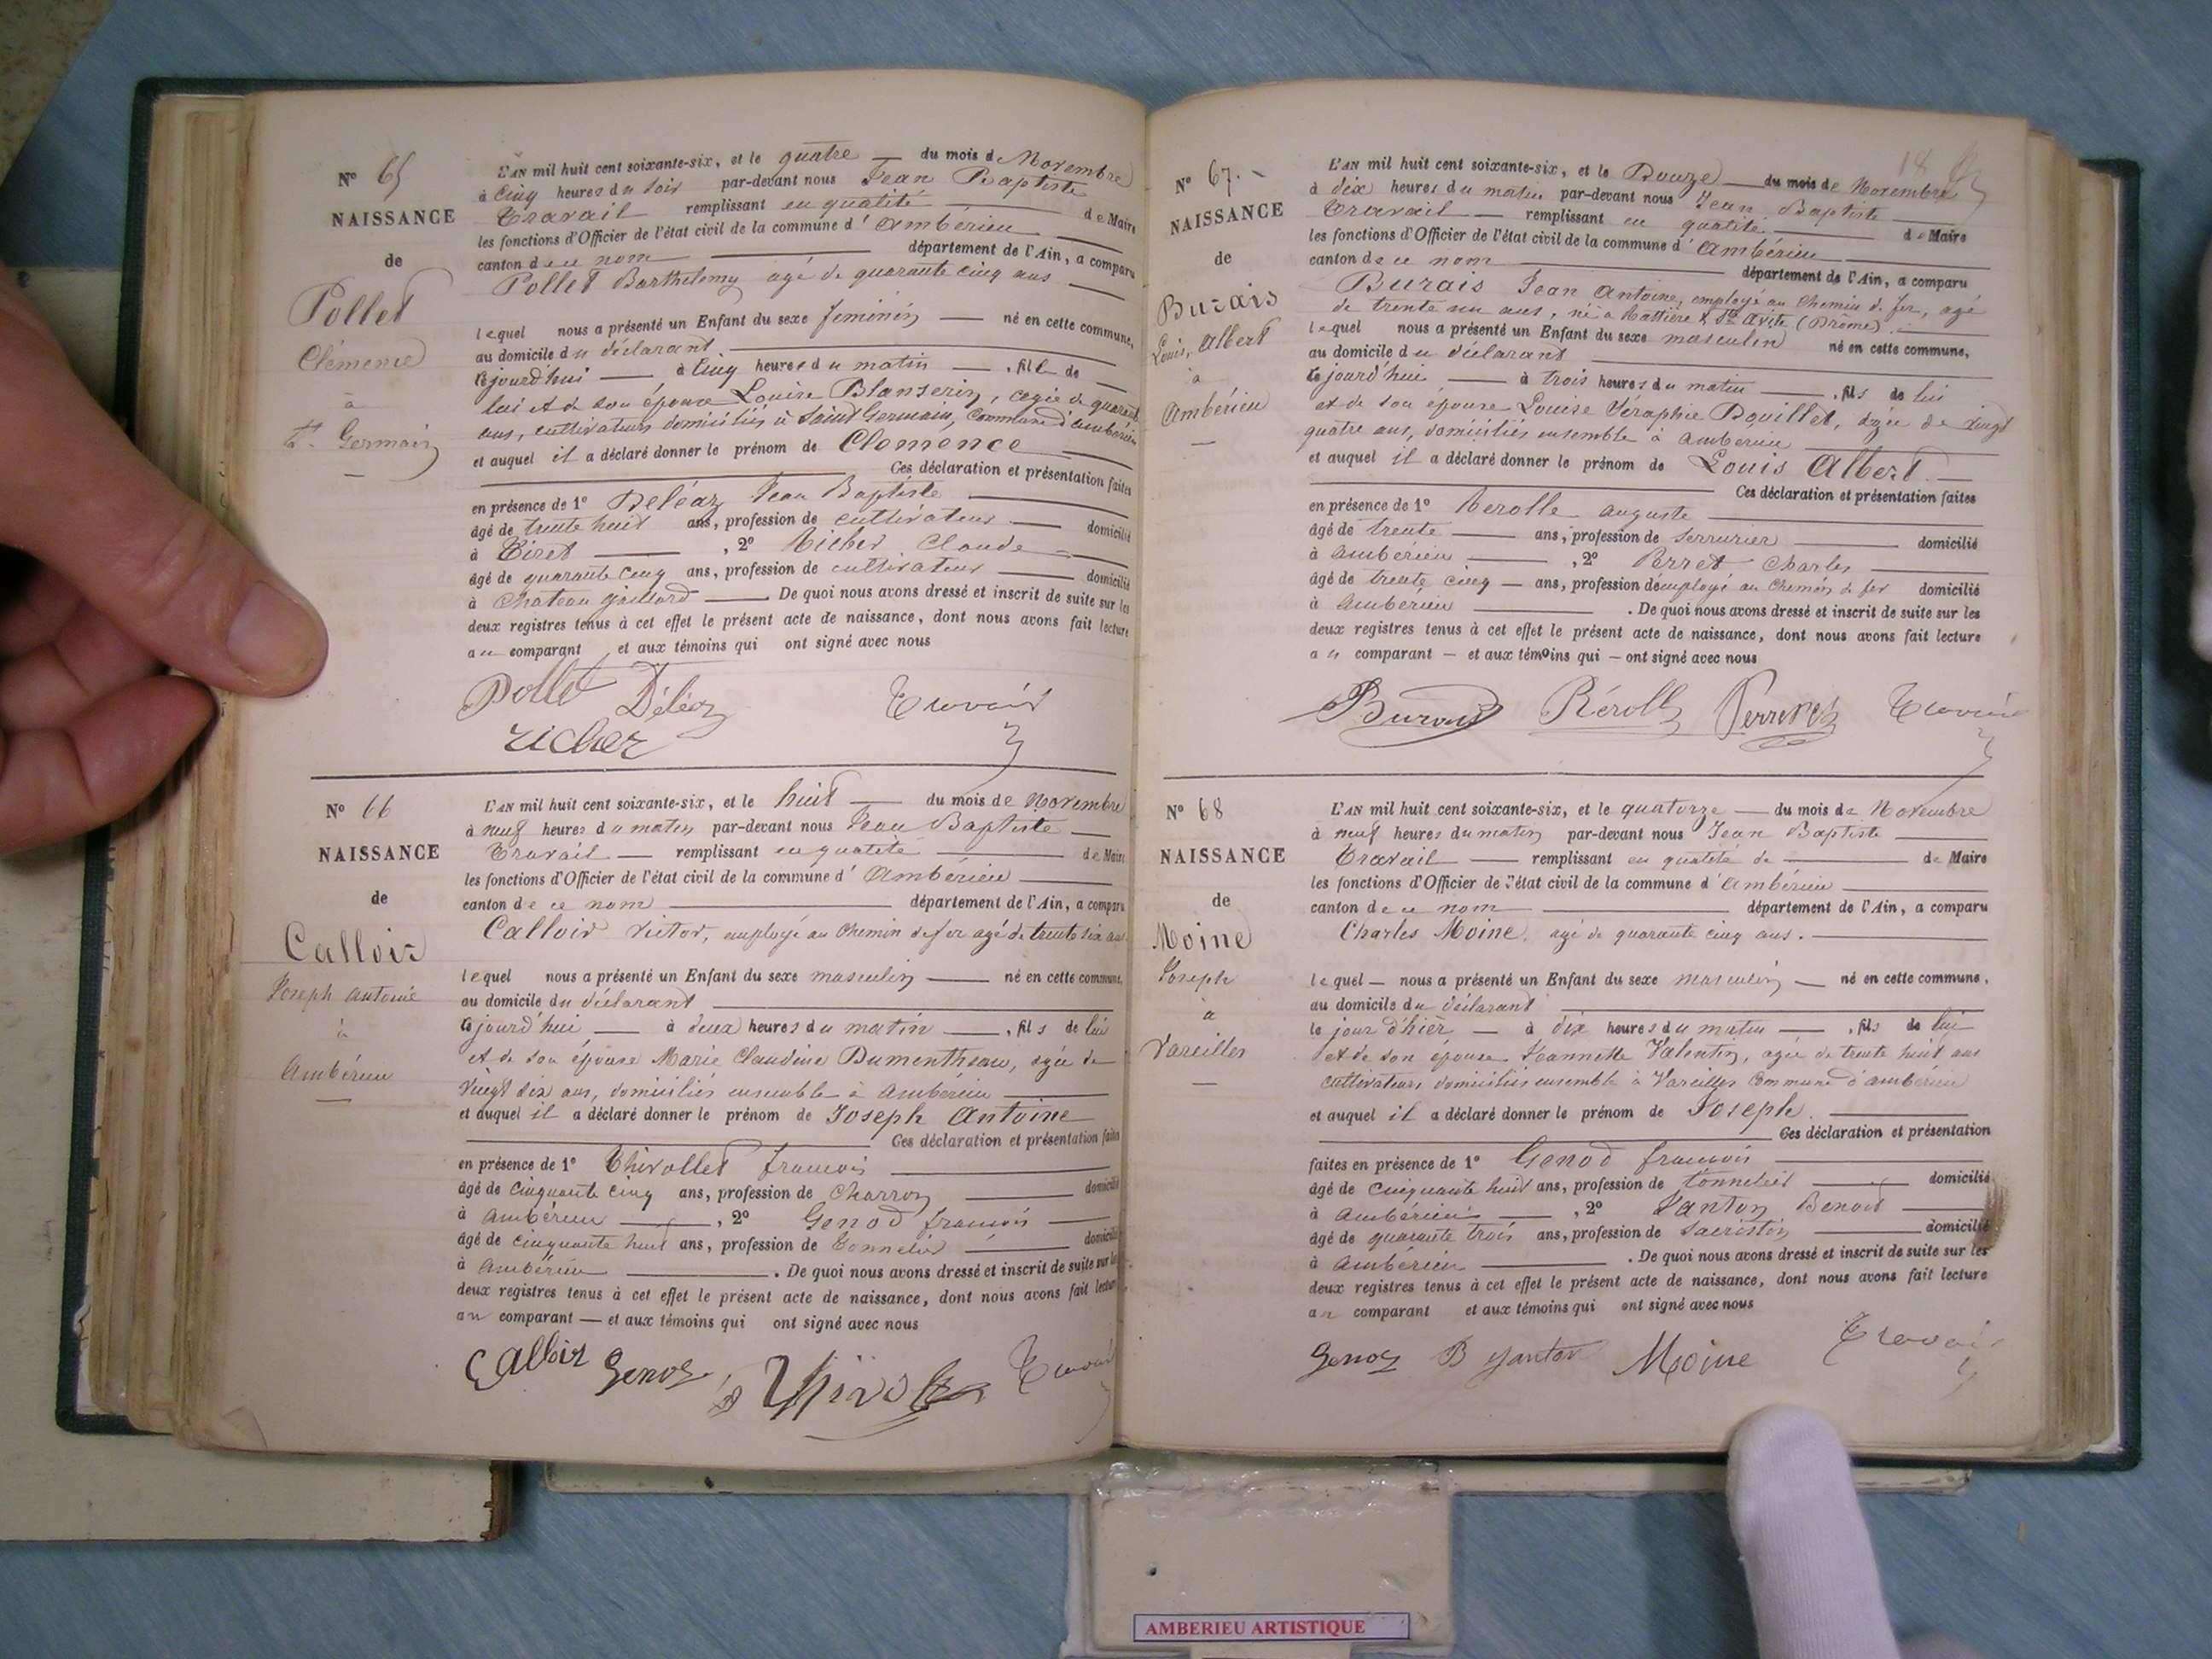 Nº 65
NAISSANCE
de
Pollet
Clémence
à
St. Germain
L'AN mil huit cent soixante-six, et le quatre du mois de Novembre
à cinq heures du soir par-devant nous Jean Baptiste
Travail remplissant en qualité de Maire
les fonctions d'Officier de l'état civil de la commune d'Ambérieu
canton de ce nom département de l'Ain, a comparu
Pollet Barthelemy agé de quarante cinq ans
lequel nous a présenté un Enfant du sexe feminin né en cette commune,
au domicile du déclarant
cejourd'hui à cinq heures du matin, fille de
lui et de son épouse Louise Blanserin, agée de quarante
ans, cultivateurs domiciliés à Saint Germain, commune d'ambérieu
et auquel il a déclaré donner le prénom de Clemence
Ces déclaration et présentation faites
en présence de 1º Deléaz Jean Baptiste
âgé de trente huit ans, profession de cultivateur domicilié
à Tiret, 2º Richer Claude
âgé de quarante cinq ans, profession de cultivateur domicilié
à Chateau gaillard. De quoi nous avons dressé et inscrit de suite sur les
deux registres tenus à cet effet le présent acte de naissance, dont nous avons fait lecture
au comparant et aux témoins qui ont signé avec nous
Pollet Déléaz Travail
richer
Nº 66
NAISSANCE
de
Calloir
Joseph antoine
à
Ambérieu
L'AN mil huit cent soixante-six, et le huit du mois de Novembre
à neuf heures du matin par-devant nous Jean Baptiste
Travail remplissant en qualité de Maire
les fonctions d'Officier de l'état civil de la commune d'Ambérieu
canton de ce nom département de l'Ain, a comparu
Calloir Victor, employé au Chemin de fer agé de trente six ans
lequel nous a présenté un Enfant du sexe masculin né en cette commune,
au domicile du déclarant
cejourd'hui à deux heures du matin, fils de lui
et de son épouse Marie Claudine Dumentheau, agée de
vingt six ans, domiciliés ensemble à Ambérieu
et auquel il a déclaré donner le prénom de Joseph Antoine
Ces déclaration et présentation faites
en présence de 1º Thivollet francois
âgé de cinquante cinq ans, profession de Charron domicilié
à Ambérieu, 2º Genod francois
âgé de cinquante huit ans, profession de Tonnelier domicilié
à Ambérieu. De quoi nous avons dressé et inscrit de suite sur les
deux registres tenus à cet effet le présent acte de naissance, dont nous avons fait lecture
au comparant — et aux témoins qui ont signé avec nous
Calloir Genod Travail
18
Nº 67.
NAISSANCE
de
Burais
Louis, Albert
à
Ambérieu
L'AN mil huit cent soixante-six, et le Douze du mois de Novembre
à dix heures du matin par-devant nous Jean Baptiste
Travail — remplissant en qualité de Maire
les fonctions d'Officier de l'état civil de la commune d'Ambérieu
canton de ce nom département de l'Ain, a comparu
Burais Jean Antoine, employé au Chemin de fer, agé
de trente un ans, né à (Drôme)
lequel nous a présenté un Enfant du sexe masculin né en cette commune,
au domicile du déclarant
cejourd'hui à trois heures du matin, fils de lui
et de son épouse Louise Séraphie Bouillet, agée de vingt
quatre ans, domiciliés ensemble à Ambérieu
et auquel il a déclaré donner le prénom de Louis Albert
Ces déclaration et présentation faites
en présence de 1º Rerolle auguste
âgé de trente ans, profession de serrurier domicilié
à Ambérieu, 2º Perret Charles
âgé de trente cinq — ans, profession d'employé au Chemin de fer domicilié
à Ambérieu. De quoi nous avons dressé et inscrit de suite sur les
deux registres tenus à cet effet le présent acte de naissance, dont nous avons fait lecture
au comparant — et aux témoins qui — ont signé avec nous
Burais Réroll Travail
Nº 68
NAISSANCE
de
Moine
Joseph
à
Vareilles
L'AN mil huit cent soixante-six, et le quatorze — du mois de Novembre
à neuf heures du matin par-devant nous Jean Baptiste
Travail — remplissant en qualité de de Maire
les fonctions d'Officier de l'état civil de la commune d'Ambérieu
canton de ce nom département de l'Ain, a comparu
Charles Moine, agé de quarante cinq ans.
lequel — nous a présenté un Enfant du sexe masculin — né en cette commune,
au domicile du déclarant
le jour d'hier — à dix heures du matin —, fils de lui
et de son épouse Jeannette Valentin, agée de trente huit ans
cultivateurs, domiciliés ensemble à Vareilles Commune d'ambérieu
et auquel il a déclaré donner le prénom de Joseph.
Ces déclaration et présentation
faites en présence de 1º Genod francois
âgé de cinquante huit ans, profession de tonnelier domicilié
à Ambérieu, 2º Janton Benoit
âgé de quarante trois ans, profession de Sacristin domicilié
à Ambérieu. De quoi nous avons dressé et inscrit de suite sur les
deux registres tenus à cet effet le présent acte de naissance, dont nous avons fait lecture
au comparant et aux témoins qui ont signé avec nous
Genod B Janton Moine Travail
AMBERIEU ARTISTIQUE